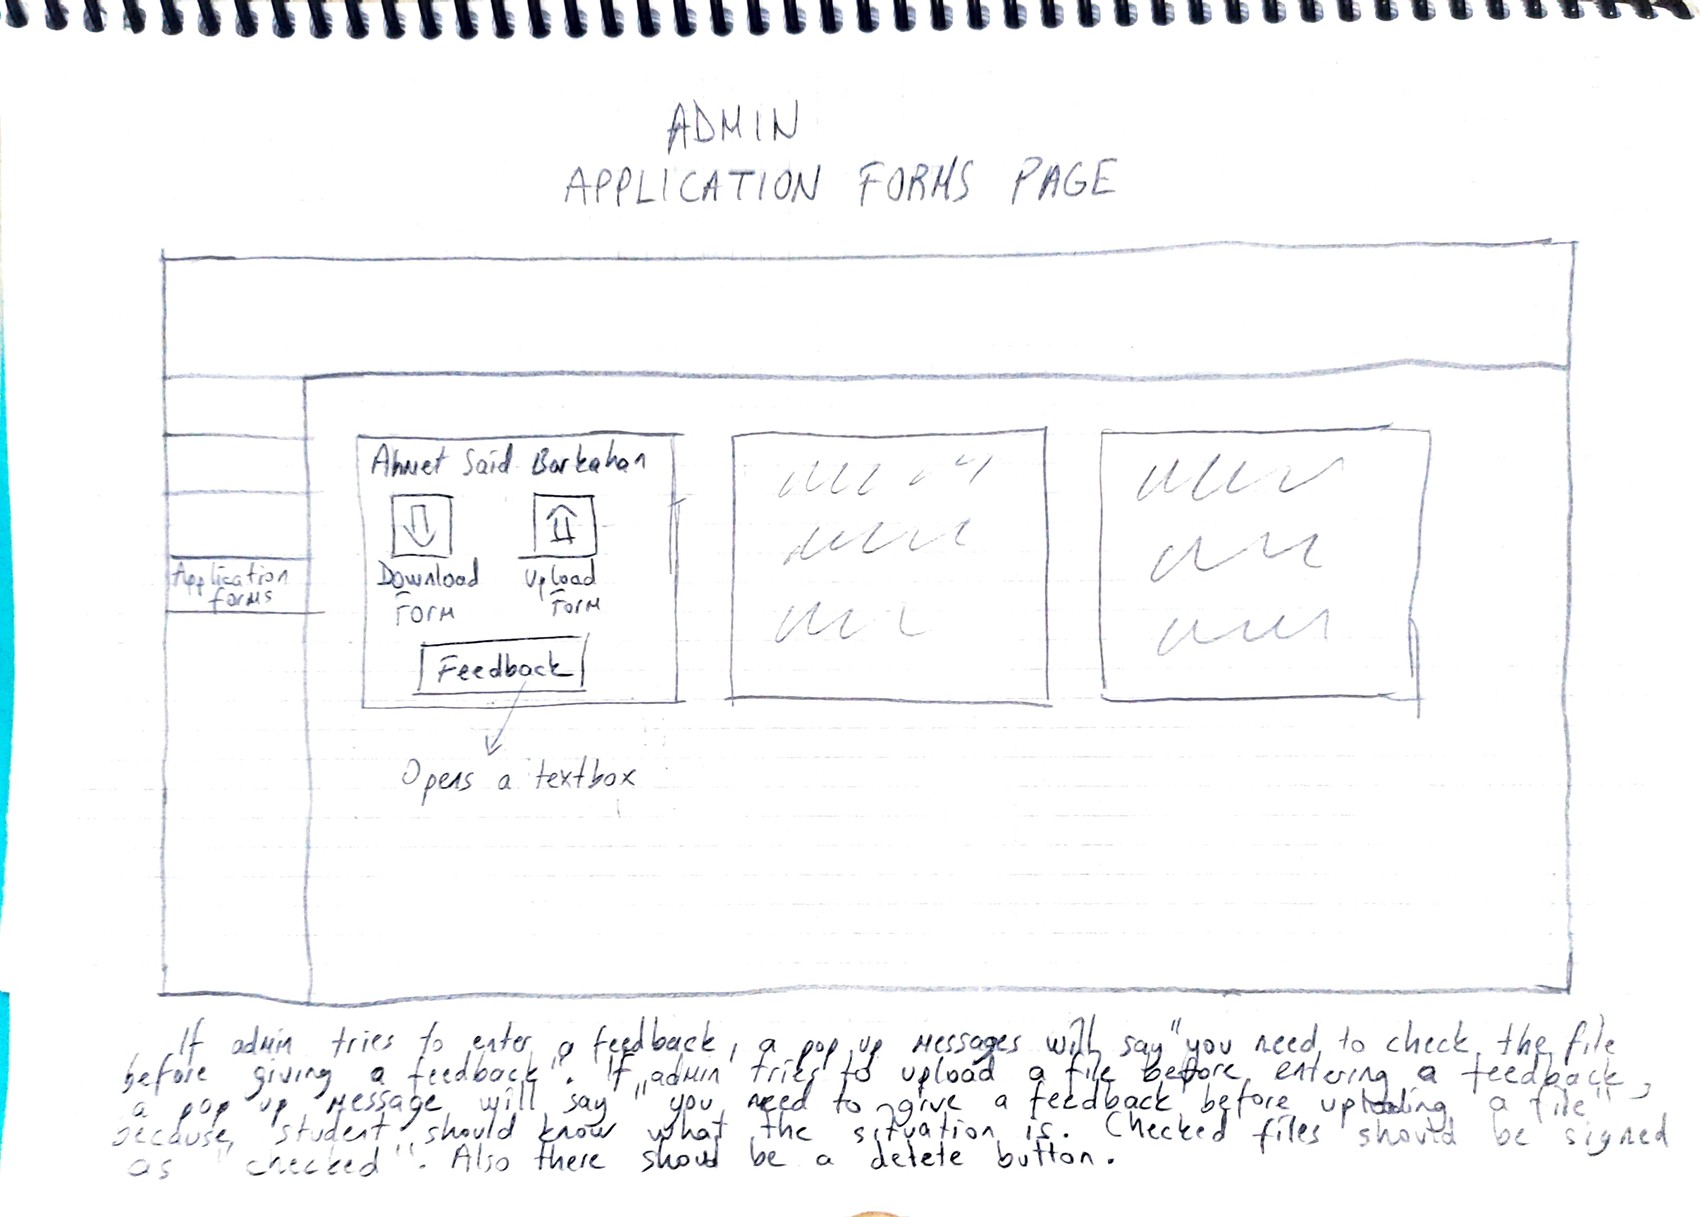 ADMIN
APPLICATION FORMS PAGE
Ahmet Said Barkahan
Download
Form
Upload
Form
Application
forms
Feedback
Opens a textbox
If admin tries to enter a feedback, a pop up messages will say "you need to check the file
before giving a feedback". If admin tries to upload a file before entering a feedback,
a pop up message will say "you need to give a feedback before uploading a file"
because, student should know what the situation is. Checked files should be signed
as "checked". Also there should be a delete button.